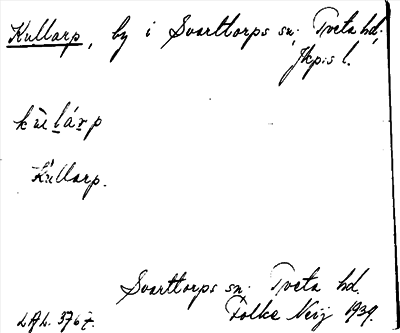 Kullarp, by i Svarttorps sn; Tveta hd;
Jkp:s l.
kùlárp
Kullarp.
Svarttorps sn. Tveta hd.
LAL. 3767. Folke Neij 1939.